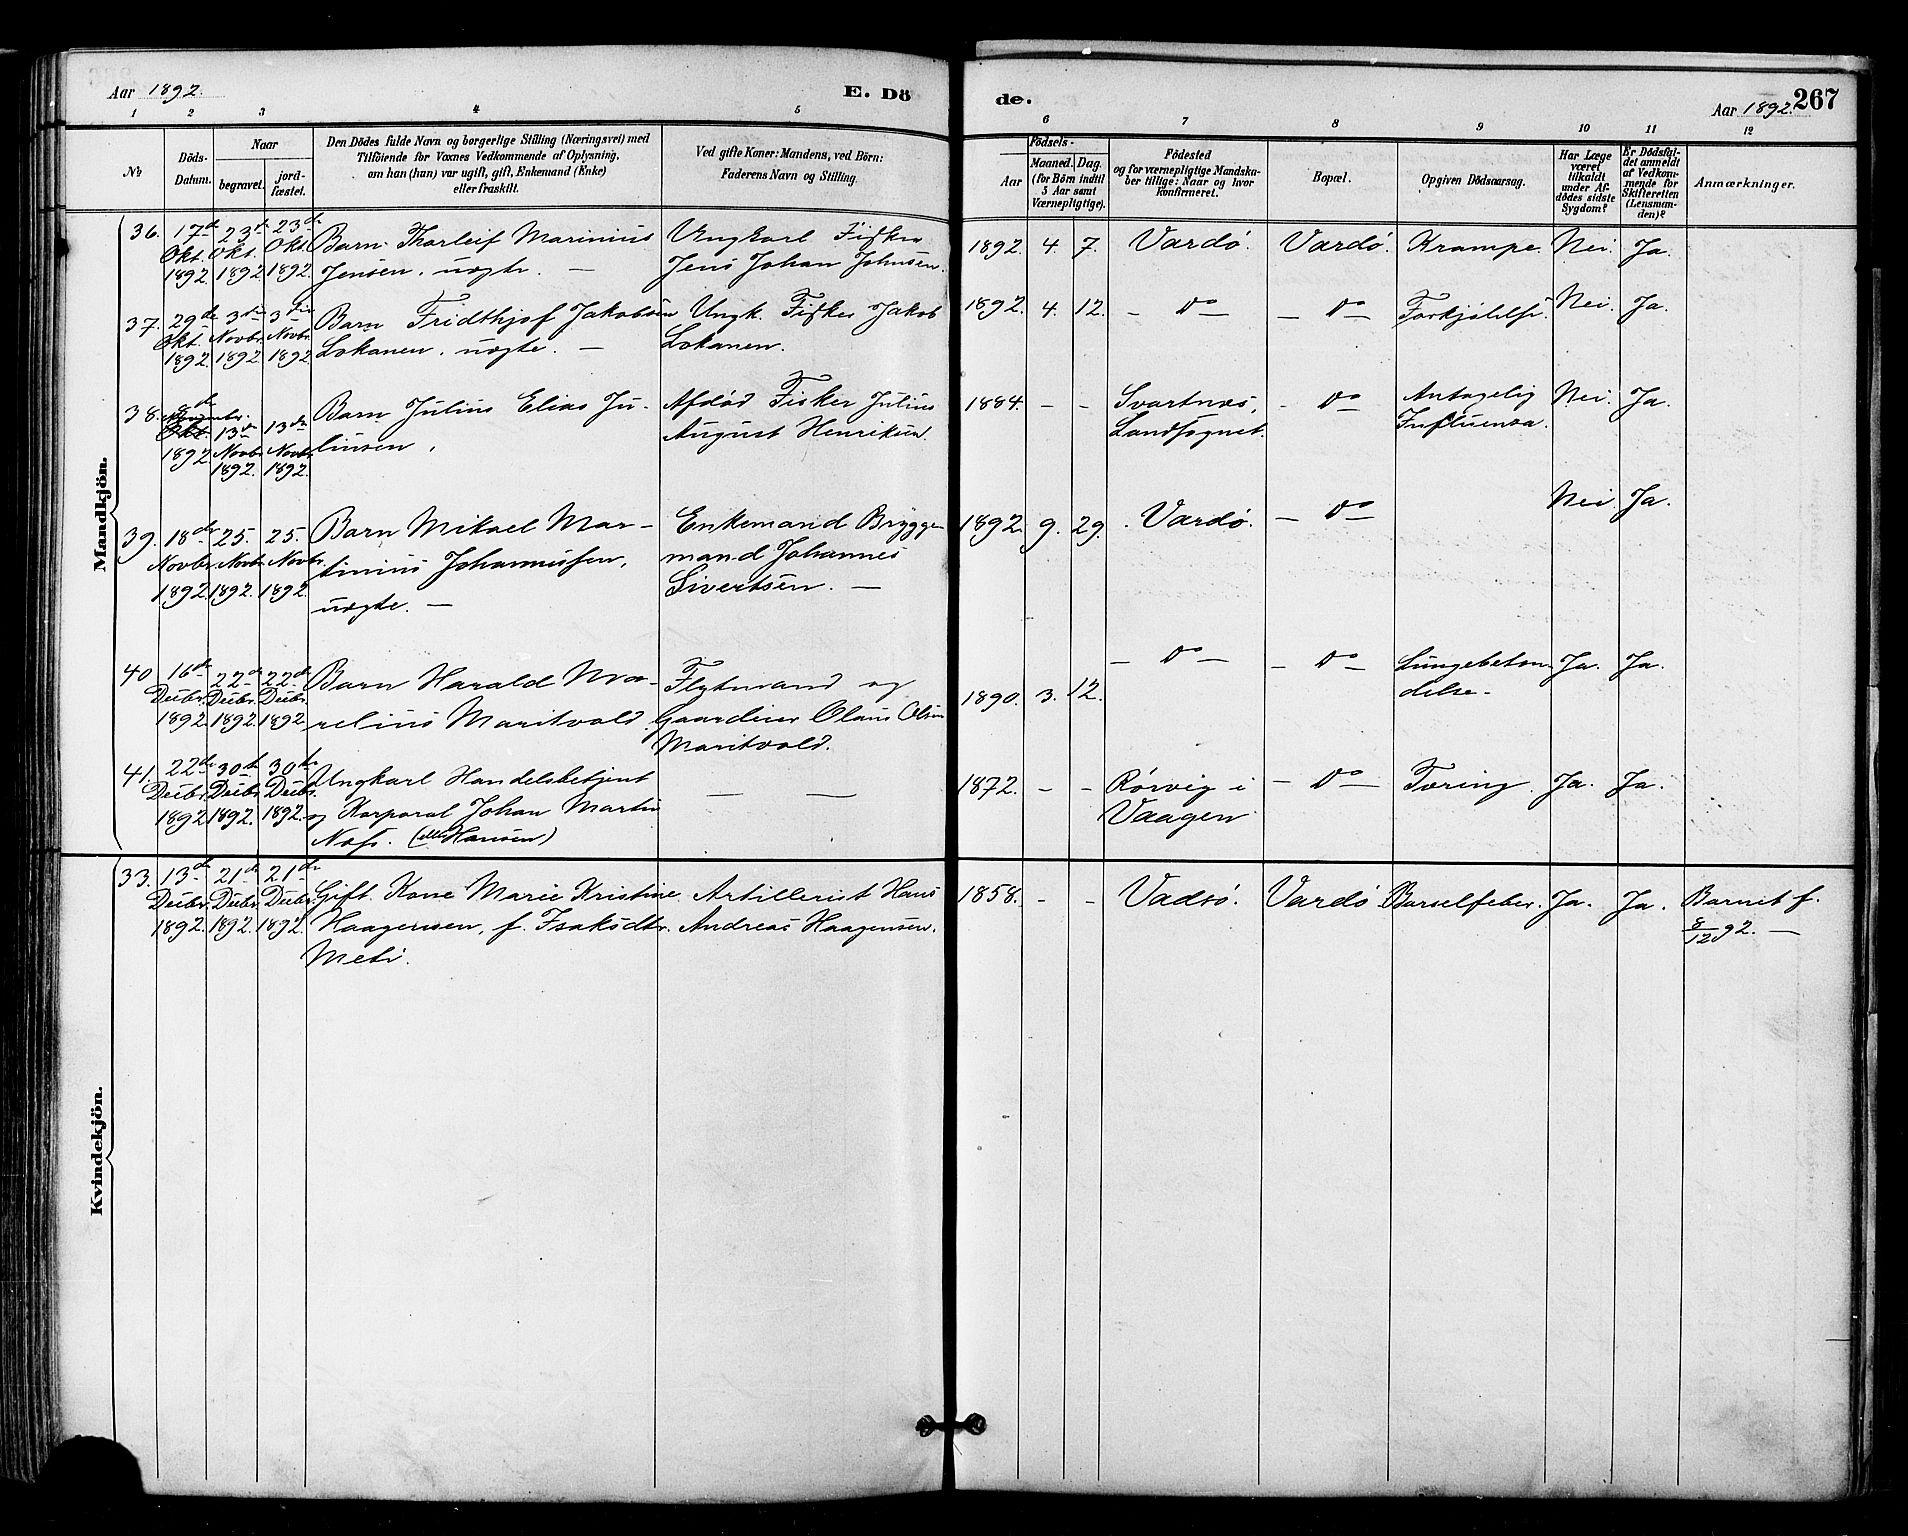 Aar 1892.
E. Dö
de.
Aar 1892.
267
1 2 3 4 5 6 7 8 9 10 11 12
No
Döds-
Datum.
Naar
begravet.
jord-
fæstet.
Den Dödes fulde Navn og borgerlige Stilling (Næringsvei) med
Tilföiende for Voxnes Vedkommende af Oplysning,
om han (hun) var ugift, gift, Enkemand (Enke)
eller fraskilt.
Ved gifte Koner: Mandens, ved Börn:
Faderens Navn og Stilling.
Födsels-
Aar
Maaned. Dag.
(for Börn indtil
5 Aar samt
Værnepligtige).
Födested
og for værnepligtige Mandska-
ber tillige: Naar og hvor
konfirmeret.
Bopæl.
Opgiven Dödsaarsag.
Har Læge
været
tilkaldt
under Af-
dödes sidste
Sygdom?
Er Dödsfal-
det anmeldt
af Vedkom-
mende for
Skifteretten
(Lensman-
den)?
Anmærkninger.
Mandkjön.
36. 17de Okt. 1892 23de Okt. 1892 23de Okt. 1892.
Barn Thorleif Marinius
Jensen. uægte. —
Ungkarl Fisker
Jens Johan Johnsen.
1892. 4. 7. Vardö. Vardö. Krampe. Nei. Ja.
37. 29de Okt. 1892 3die Novbr. 1892 3die Novbr. 1892
Barn Fridthjof Jakobsen
Lokanen. uægte. —
Ungk. Fisker Jakob
Lokanen.
1892. 4. 12. — Do — — Do — Forkjölelse. Nei. Ja.
38. 8de November. Okt. 1892 13de Novbr. 1892. 13de Novbr. 1892.
Barn Julius Elias Ju-
liussen.
Afdöd Fisker Julius
August Henriksen.
1884. - - Svartnæs,
Landsognet.
- Do — Antagelig
Influensa.
Nei. Ja.
39. 18de Novbr. 1892 25. Novbr. 1892. 25. Novbr. 1892.
Barn Mikael Mar-
tinius Johannessen,
uægte. —
Enkemand Brygge-
mand Johannes
Sivertsen. —
1892. 9. 29. Vardö. — Do — Nei Ja.
40 16de Decbr. 1892 22de Decbr. 1892. 22de Decbr. 1892
Barn Harald
relius Maritvold.
og
Gaardeier Olaus Olsen
Maritvold.
1890. 3. 12. — Do — — Do — Lungebeten-
delse.
Ja. Ja.
41. 22de Decbr. 1892 30te Decbr. 1892. 30te Decbr. 1892.
Ungkarl Handelsbetjent
og Korporal Johan Martin
Næss. (eller Hansen)
— —
1872. - - Rörvig i
Vaagen
- Do — Tæring. Ja. Ja.
Kvindekjön.
33. 13de Decbr. 1892. 21de Decbr. 1892. 21de Decbr. 1892.
Gift. Kone Marie Kristine
Haagensen, f. Isaksdtr.
Meti.
Artillerist Hans
Andreas Haagensen.
1858. - - Vadsö. Vardö Barselfeber. Ja. Ja. Barnet f.
8/12 92. —